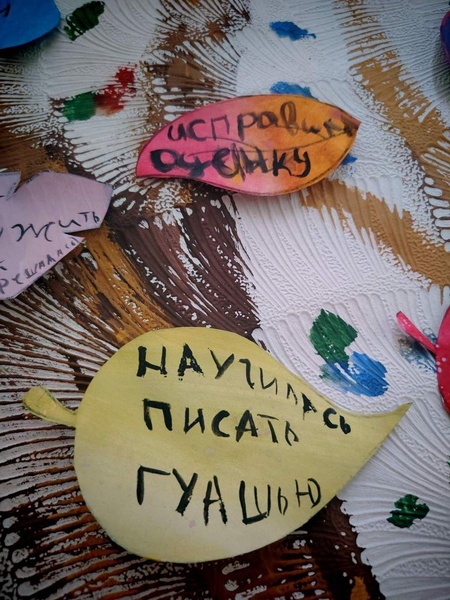 исправила
оценку
жить
НАУЧИЛАСЬ
ПИСАТЬ
ГУАШЬЮ